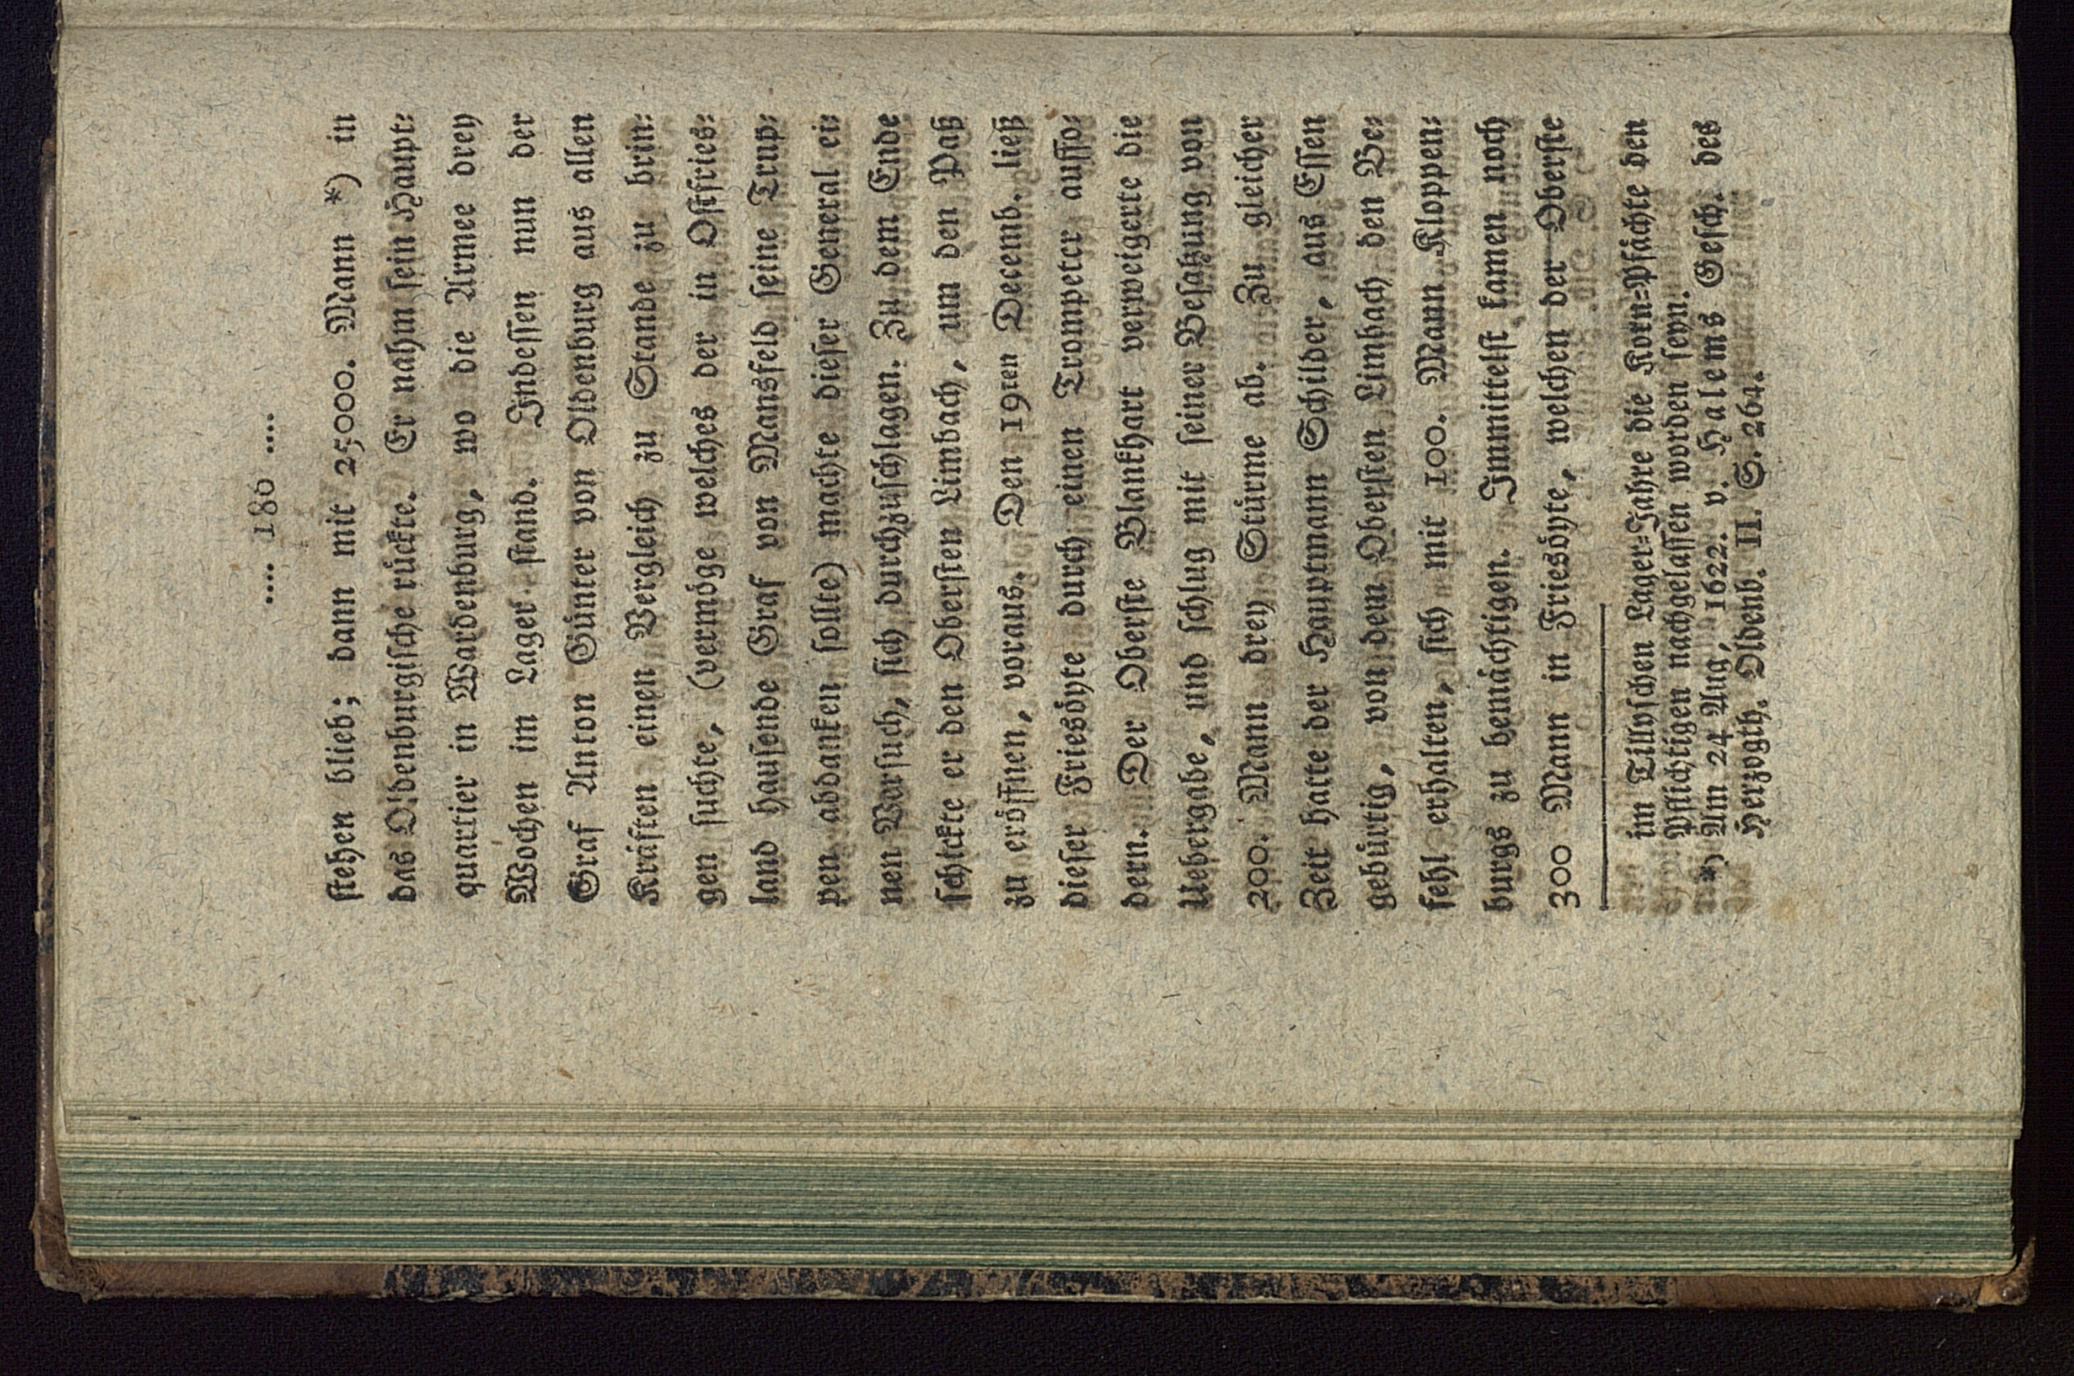 .... 186 ....
stehen blieb; dann mit 25000. Mann *) in
das Oldenburgische rückte. Er nahm sein Haupt-
quartier in Wardenburg, wo die Armee drey
Wochen im Lager stand. Indessen nun der
Graf Anton Günter von Oldenburg aus allen
Kräften einen Vergleich zu Stande zu brin-
gen suchte, (vermöge welches der in Ostfries-
land hausende Graf von Mansfeld seine Trup-
pen abdanken sollte) machte dieser General ei-
nen Versuch, sich durchzuschlagen. Zu dem Ende
schickte er den Obersten Limbach, um den Paß
zu eröffnen, voraus. Den 19ten Decemb. ließ
dieser Friesöyte durch einen Trompeter auffo-
dern. Der Oberste Blankhart verweigerte die
Uebergabe, und schlug mit seiner Besatzung von
200. Mann drey Stürme ab. Zu gleicher
Zeit hatte der Hauptmann Schilder, aus Essen
gebürtig, von dem Obersten Limbach den Be-
fehl erhalten, sich mit 100. Mann Kloppen-
burgs zu bemächtigen. Immittelst kamen noch
300 Mann in Friesöyte, welchen der Oberste
im Tillyschen Lager-Jahre die Korn-Pfächte den
Pflichtigen nachgelassen worden seyn.
*) Am 24 Aug, 1622. v. Halems Gesch. des
Herzogth. Oldenb. II. S. 264.